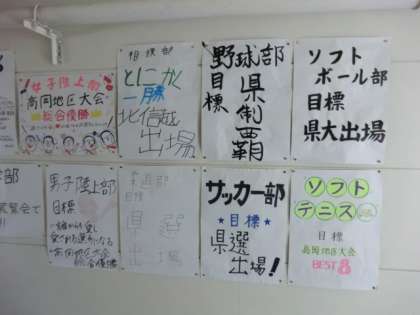 女子陸上部
高岡地区大会
総合優勝
相撲部
とにかく
一勝
北信越
出場
野球部
目標
県制覇
ソフト
ボール部
目標
県大出場
男子陸上部
目標
高岡地区大会
総合優勝
柔道部
目標
県選
出場
サッカー部
★目標★
県選
出場!
ソフト
テニス
目標
高岡地区大会
BEST8